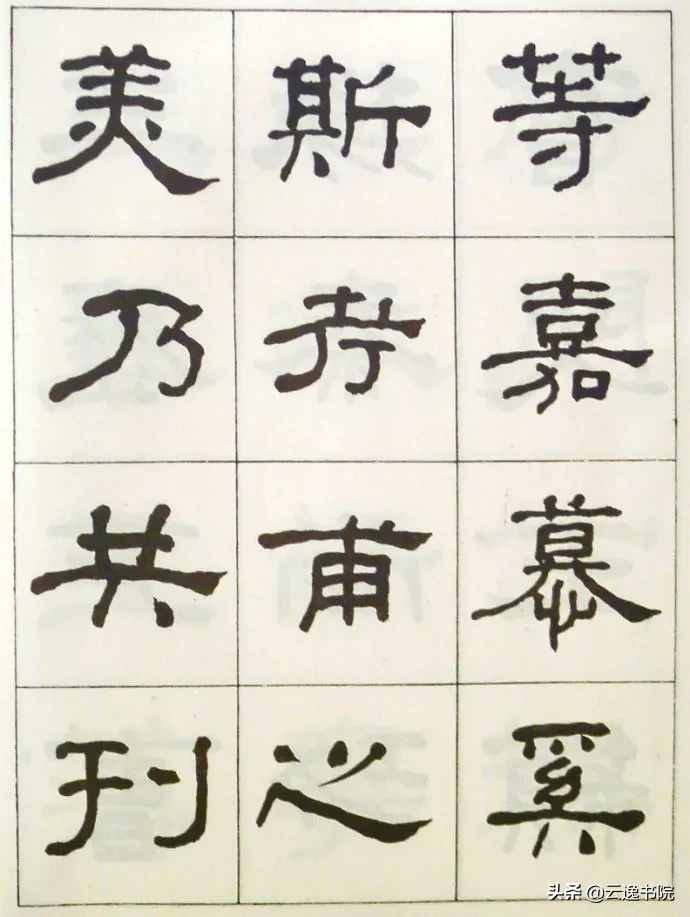 等嘉慕奚
斯考甫之
美乃共刊
头条 @云逸书院